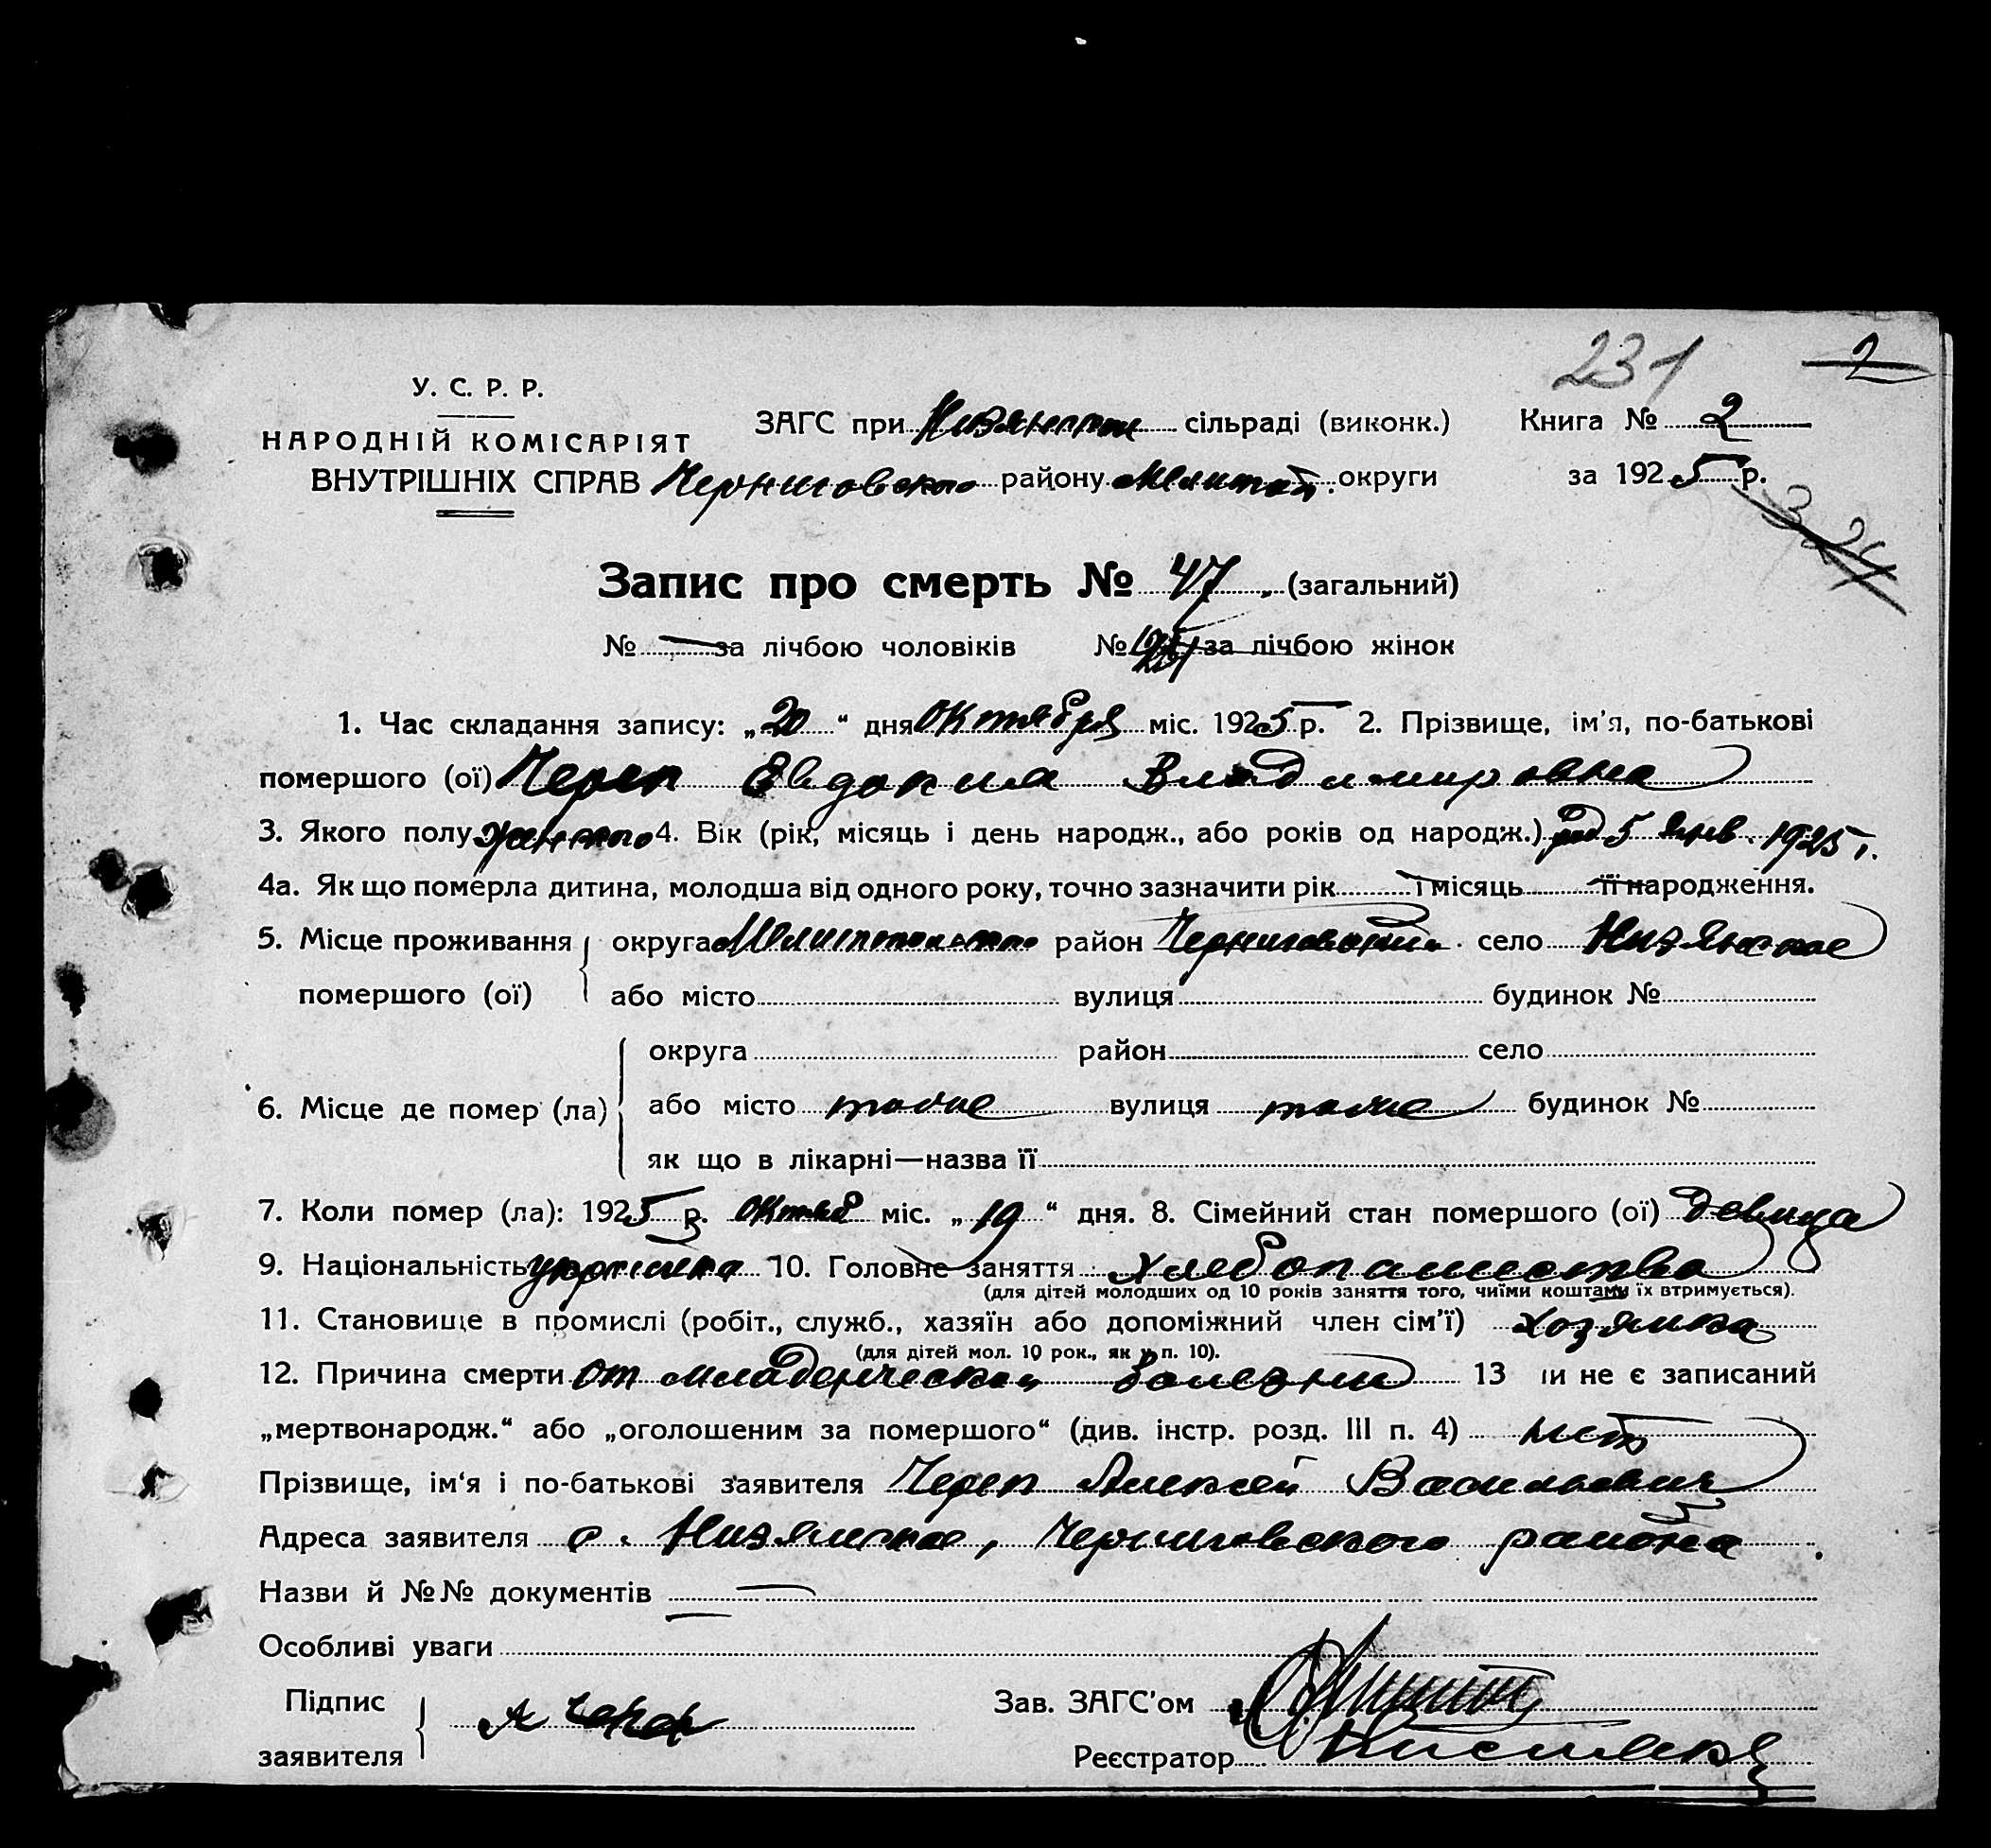 231 2
У. С. Р. Р.
НАРОДНІЙ КОМІСАРІЯТ
ВНУТРІШНІХ СПРАВ
ЗАГС при сільраді (виконк.) Книга № 2
Черниговского району Мелитоп. округи за 1925 р.
3 24
Запис про смерть № 47. (загальний)
№ — за лічбою чоловіків № за лічбою жінок
1. Час складання запису: „20“ дня Октября міс. 1925 р. 2. Прізвище, ім'я, по-батькові
помершого (ої) Череп Евдокия Владимировна
3. Якого полу женского 4. Вік (рік, місяць і день народж., або років од народж.) род 5 янв. 1925 г.
4а. Як що померла дитина, молодша від одного року, точно зазначити рік і місяць її народження.
5. Місце проживання округа район Черниговский село Низянское
помершого (ої) або місто вулиця будинок №
округа район село
6. Місце де помер (ла) або місто тоже вулиця тоже будинок №
як що в лікарні—назва її
7. Коли помер (ла): 1925 р. Октяб міс. „19“ дня. 8. Сімейний стан помершого (ої) девица
9. Національність 10. Головне заняття хлебопашество
(для дітей молодших од 10 років заняття того, чиїми коштами їх втримується).
11. Становище в промислі (робіт., служб., хазяїн або допоміжний член сім'ї) хозяика
(для дітей мол. 10 рок., як у п. 10).
12. Причина смерти от младенческой болезни 13 чи не є записаний
„мертвонародж.“ або „оголошеним за помершого“ (див. інстр. розд. III п. 4) нет
Прізвище, ім'я і по-батькові заявителя Череп Алексей Васильевич
Адреса заявителя с. Низянское, Черниговского района.
Назви й №№ документів —
Особливі уваги
Підпис
заявителя А Череп
Зав. ЗАГС'ом
Реєстратор